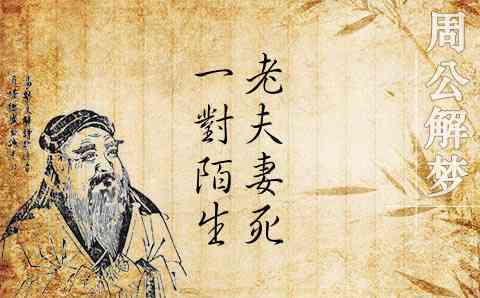 周公解梦
老夫妻死
一對陌生